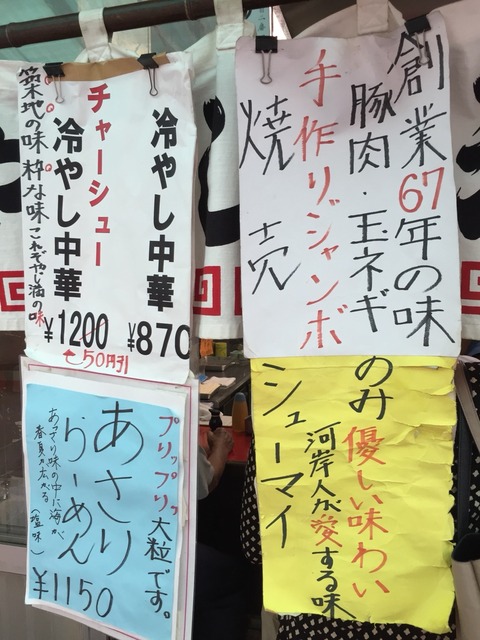 創業67年の味
豚肉・玉ネギ
手作りジャンボ
焼売
のみ
優しい味わい
河岸人が愛する味
シューマイ
冷やし中華
¥870
チャーシュー
冷やし中華
¥1200
50円引
築地の味 粋な味 これぞやじ満の味
プリップリッ大粒です。
あさり
らーめん
あっさり味の中に海が
春具が広がる(塩味)
¥1150